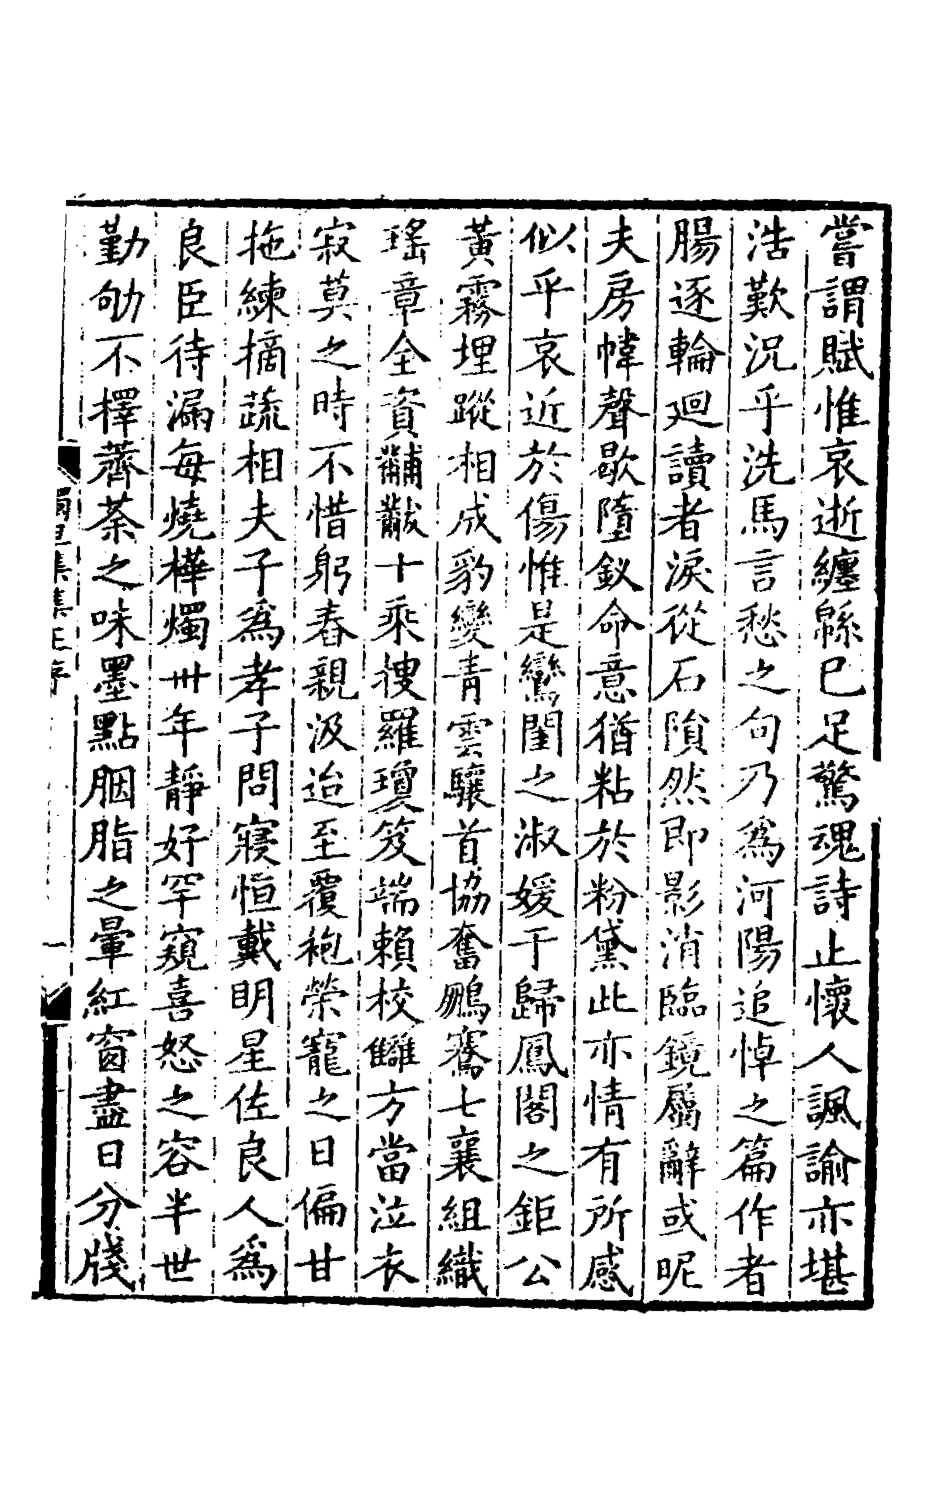 嘗謂賦惟哀逝纏緜已足驚魂詩止懷人諷諭亦堪
浩歎況乎洗馬言愁之句乃爲河陽追悼之篇作者
腸逐輪廻讀者淚從石隕然即影消臨鏡屬辭或昵
夫房幃聲歇墮釵命意猶粘於粉黛此亦情有所感
似乎哀近於傷惟是鸞閨之淑媛于歸鳳閣之鉅公
黃霧埋蹤相成豹變青雲驤首協奮鵬騫七襄組織
瑤章全資黼黻十乘搜羅瓊笈端賴校讎方當泣衣
寂莫之時不惜躬舂親汲迨至覆袍榮寵之日偏甘
拖練摘蔬相夫子爲孝子問寢恒戴明星佐良人爲
良臣待漏每燒樺燭卅年靜好罕窺喜怒之容半世
勤劬不擇薺荼之味墨點胭脂之暈紅窗盡日分牋
集 序
一